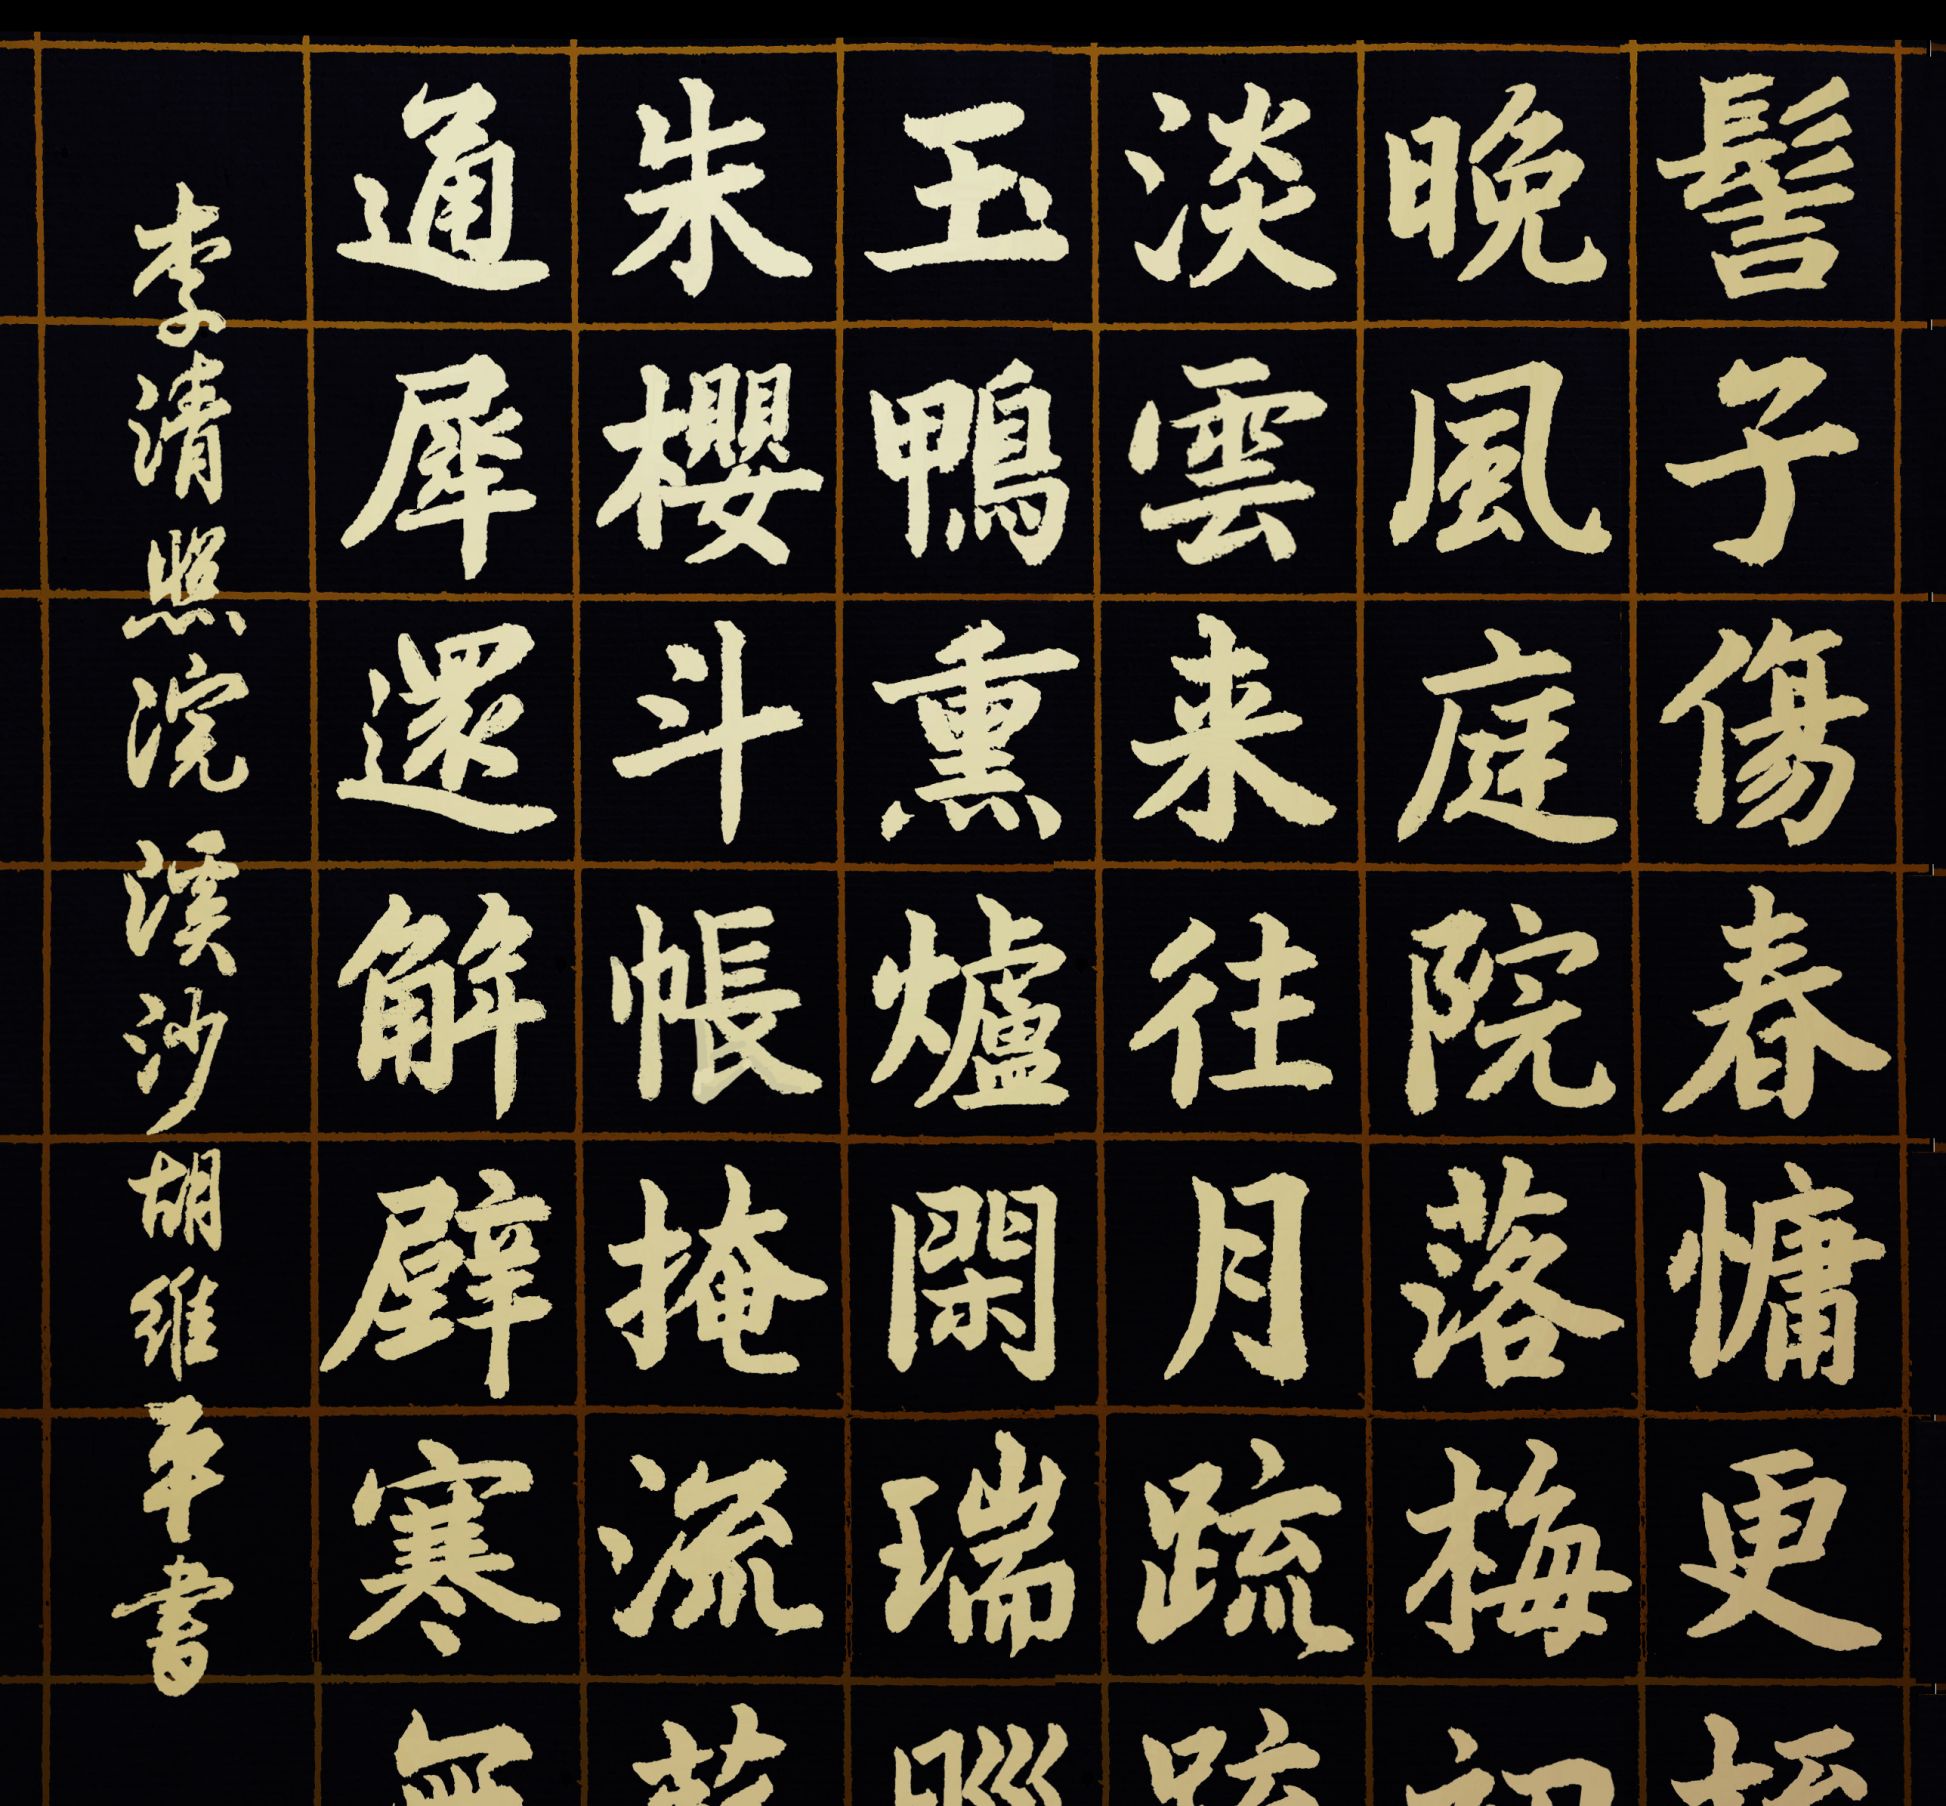 髻子傷春慵更
晚風庭院落梅
淡雲来往月䟽
玉鴨熏爐閑瑞
朱櫻斗帳掩流
通犀還解辟寒
李清照浣溪沙胡維平書